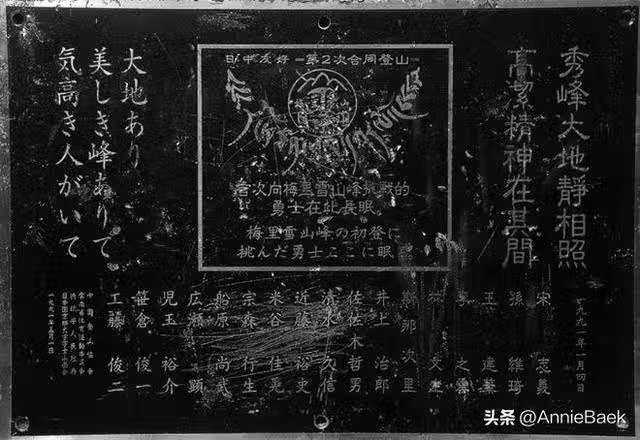 秀峰大地静相照
高潔精神在其間
日中友好第2次合同登山
首次向梅里雪山峰挑戦的
勇士在此長眠
梅里雪山峰の初登に
挑んだ勇士ここに眠
大地あり
美しき峰ありて
気高き人がいて
一九九一年一月四日
宋 志義
孫 維琦
王 建華
李 之雲
林 文生
斯那次里
井上 治郎
佐佐木 哲男
清水 久信
近藤 裕史
米谷 佳晃
宗森 行生
船原 尚武
広瀬 顕
児玉 裕介
笹倉 俊一
工藤 俊二
中国登山協会
日本国京都大学学士山岳会
头条 @AnnieBaek